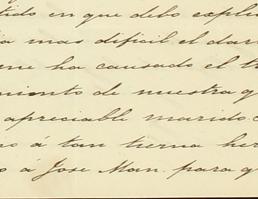 tido en que debo expli
ia mas dificil el dar
me ha causado el t
miento de nuestra q
apreciable marido.
no á tan tierna her
o á Jose Man. para q